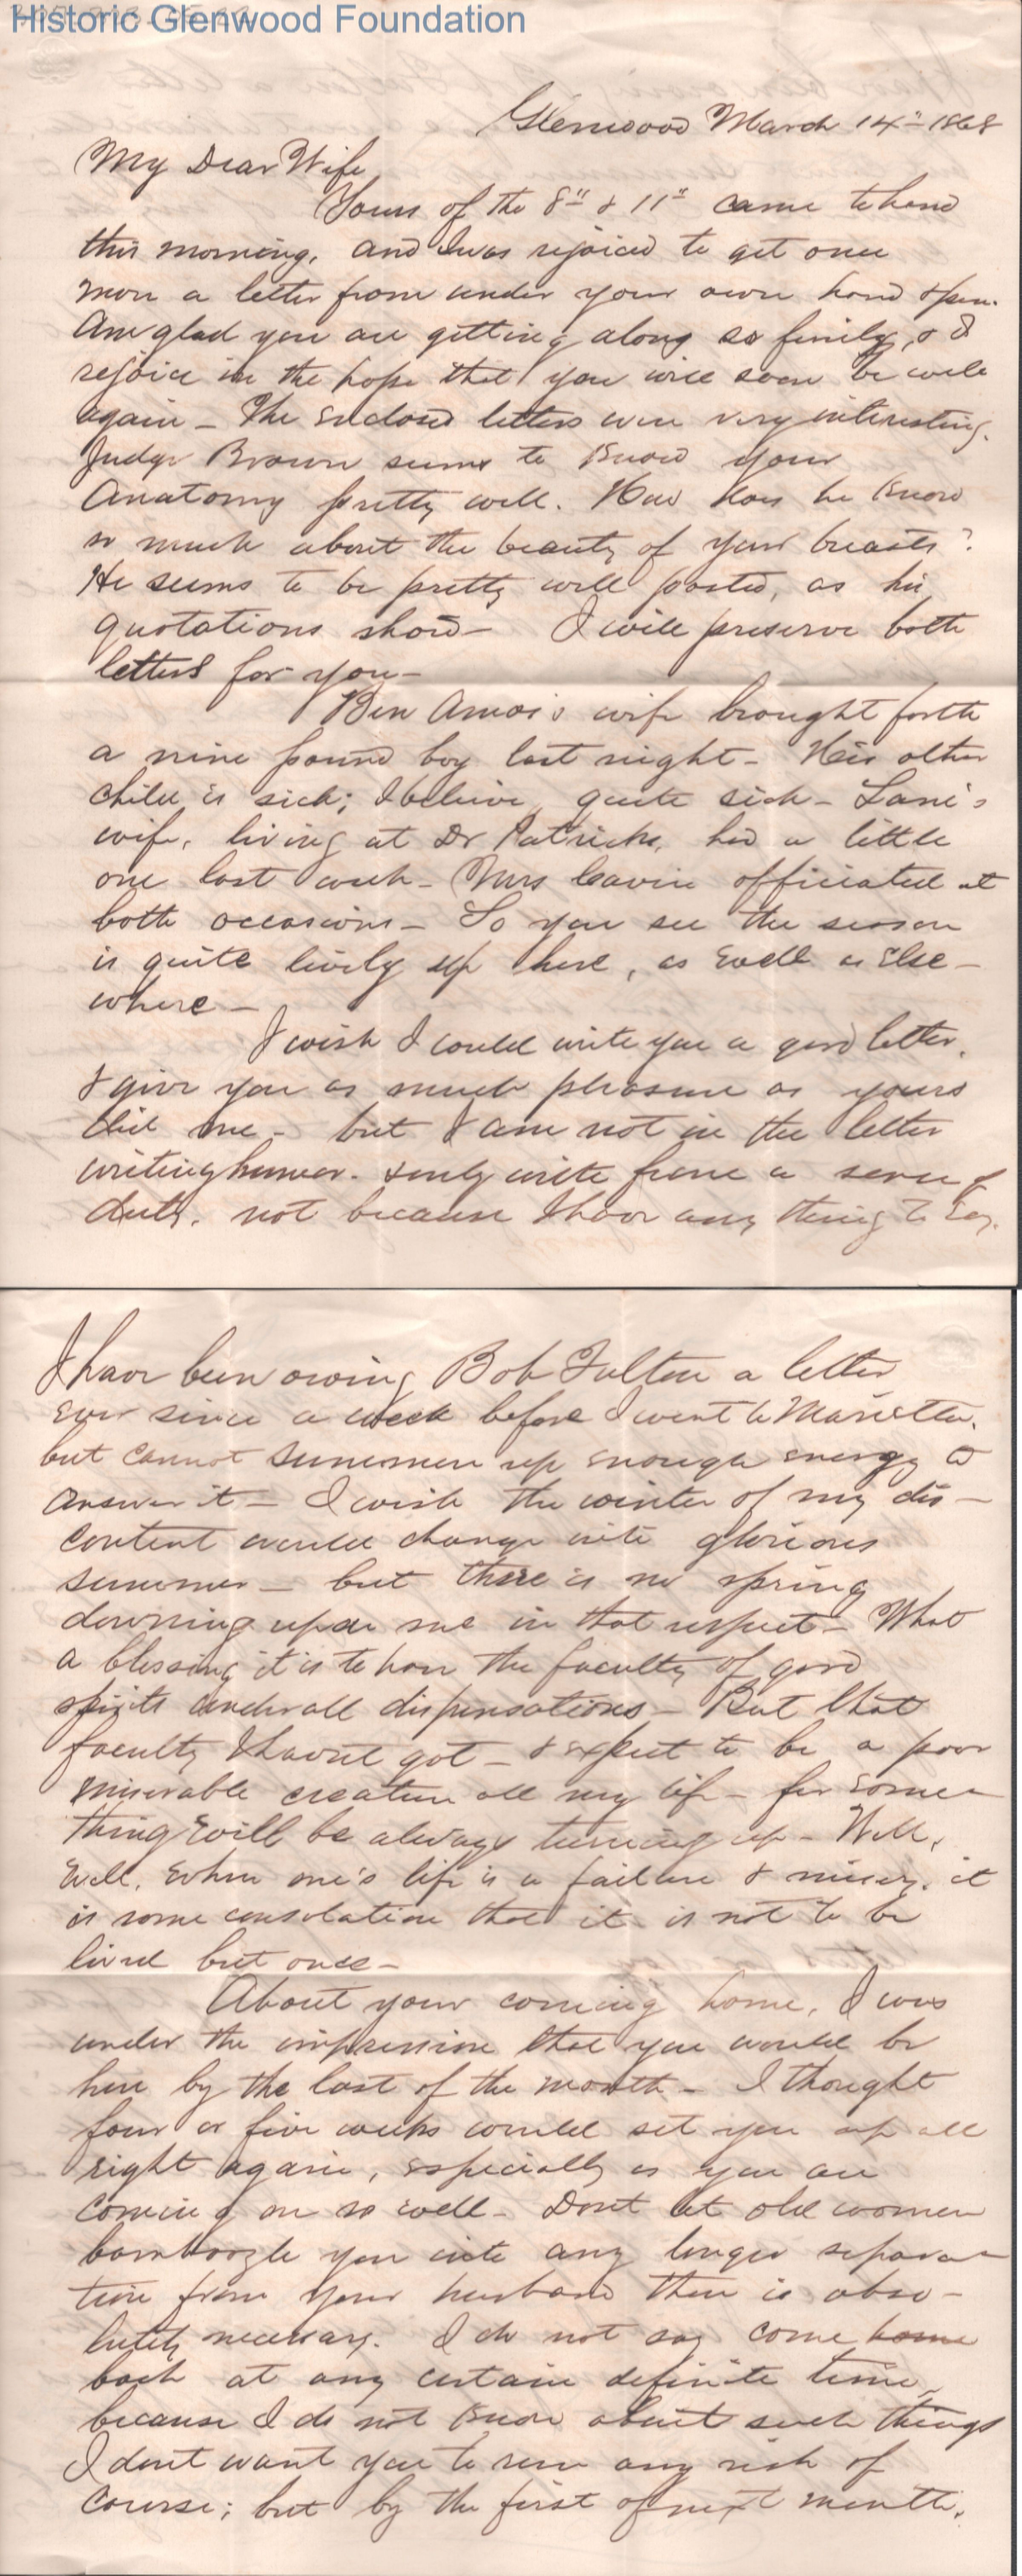 Historic Glenwood Foundation
Glenwood March 14" - 1868
My Dear Wife
Yours of the 8" & 11" came to hand
this morning, and I was rejoiced to get once
more a letter from under your own hand again.
Am glad you are getting along so finely, & I
rejoice in the hope that you will soon be well
again - The enclosed letters were very interesting.
Judge Brown seems to know your
Anatomy pretty well. How does he know
so much about the beauty of your breasts?
He seems to be pretty well posted, as his
quotations show - I will preserve both
letters for you -
Ben Amos's wife brought forth
a nine pound boy last night - His other
child is sick; I believe, quite sick - Lane's
wife, living at Dr Patricks, had a little
one last week - Mrs officiated at
both occasions - So you see the season
is quite lively up here, as well as else -
where -
I wish I could write you a good letter,
& give you as much pleasure as yours
did me - but I am not in the letter
writing humor. & only write from a sense of
duty. not because I have any thing to say.
I have been owing Bob Fulton a letter
ever since a week before I went to Marietta,
but cannot summon up enough energy to
answer it - I wish the winter of my dis -
content would change into glorious
summer - but there is no spring
dawning upon me in that respect - What
a blessing it is to have the faculty of good
spirits under all dispensations - But that
faculty I havnt got - & expect to be a poor
miserable creature all my life - for some -
thing will be always turning up - Well,
well, when one's life is a failure & misery, it
is some consolation that it is not to be
lived but once -
About your coming home, I was
under the impression that you would be
here by the last of the month - I thought
four or five weeks would set you up all
right again, especially as you are
coming on so well - Dont let old women
bamboozle you into any longer separa -
tion from your husband than is abso -
lutely necessary. I do not say come home
back at any certain definite time,
because I do not know about such things
I dont want you to run any risk of
course; but by the first of next month,